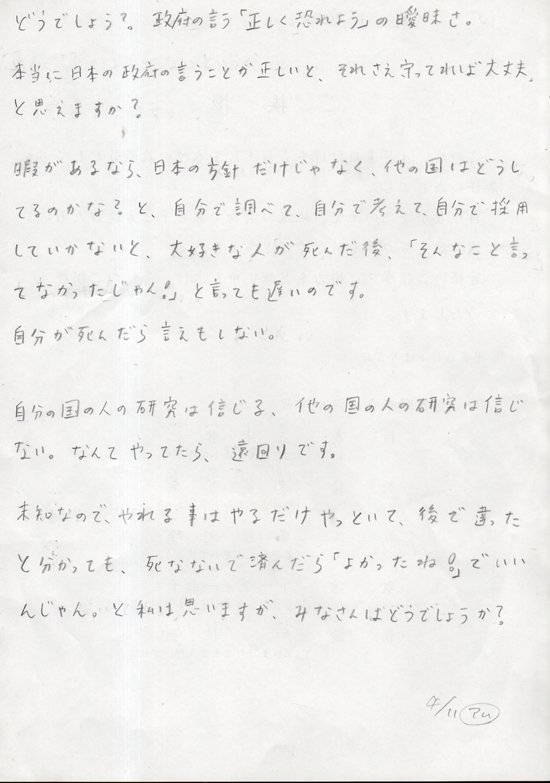 どうでしょう?。政府の言う「正しく恐れよう」の曖昧さ。
本当に日本の政府の言うことが正しいと、それさえ守ってれば大丈夫。
と思えますか?
暇があるなら、日本の方針だけじゃなく、他の国はどうし
てるのかな?と、自分で調べて、自分で考えて、自分で採用
していかないと、大好きな人が死んだ後、「そんなこと言っ
てなかったじゃん!」と言っても遅いのです。
自分が死んだら言えもしない。
自分の国の人の研究は信じる、他の国の人の研究は信じ
ない。なんてやってたら、遠回りです。
未知なので、やれる事はやるだけやっといて、後で違った
と分かっても、死なないで済んだら「よかったね!」でいい
んじゃん。と私は思いますが、みなさんはどうでしょうか?
4/11